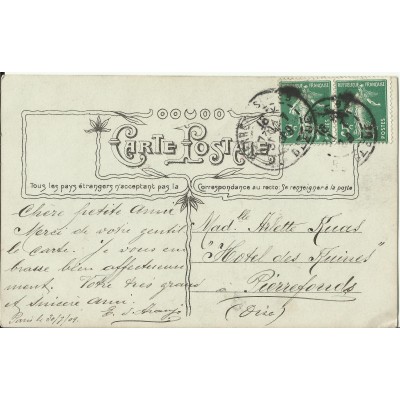 CARTE POSTALE
Tous les pays étrangers n'acceptant pas la Correspondance au recto. Se renseigner à la poste
REPUBLIQUE FRANÇAISE
REPUBLIQUE FRANÇAISE
POSTES
Chère petite Amie
Merci de votre gentille
carte. Je vous em
brasse bien affectueuse
ment. Votre très grand
et sincère Ami.
Paris le
Mad.lle
"Hotel des Ruines"
à Pierrefonds
(Oise)